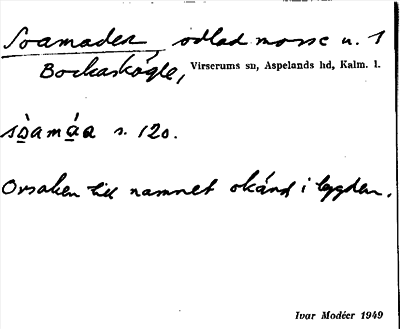 Soamaden, odlad mosse u. 1
Bockaskögle, Virserums sn, Aspelands hd, Kalm. l.
sòamáa s. 120.
Orsaken till namnet okänd i bygden.
Ivar Modéer 1949